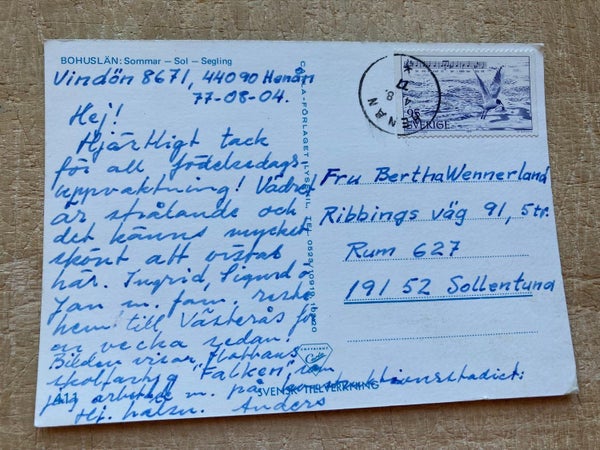 BOHUSLÄN: Sommar – Sol – Segling
Vindön 8671, 44090 Henån
77-08-04.
Hej!
Hjärtligt tack
för all födelsedags-
uppvaktning! Vädret
är strålande och
det känns mycket
skönt att vistas
här. Ingrid, Sigurd o
Jan m. fam. reste
hem till Västerås för
en vecka sedan.
Bilden visar flottans
skolfartyg "Falken", som
jag arbetade m. på konstruktionsstadiet.
Hj. hälsn. Anders
A11
SVENSK TILLVERKNING
FÖRLAGET LYSEKIL. TEL. 0523/10919
HENÅN
4 8
SVERIGE
Fru Bertha Wennerland
Ribbings väg 91, 5tr.
Rum 627
191 52 Sollentuna